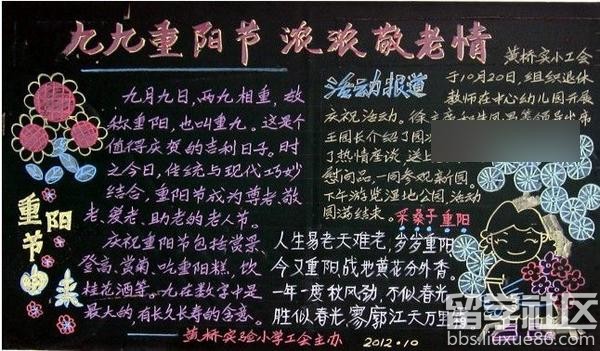 九九重阳节 浓浓敬老情
重阳节由来
九月九日，两九相重，故
称重阳，也叫重九。这是个
值得庆贺的吉利日子。时
至今日，传统与现代巧妙
结合，重阳节成为尊老、敬
老、爱老、助老的老人节。
庆祝重阳节包括赏景
登高、赏菊、吃重阳糕、饮
桂花酒等。九在数字中是
最大的，有长久长寿的含意。
黄桥实验小学工会主办
活动报道
黄桥实小工会
于10月20日，组织退休
教师在中心幼儿园开展
庆祝活动。徐
王园长介绍了园
了热情座谈，送上
慰问品，一同参观新园。
下午游览湿地公园，活动
圆满结束。
采桑子 重阳
人生易老天难老，岁岁重阳
今又重阳，战地黄花分外香。
一年一度秋风劲，不似春光，
胜似春光，寥廓江天万里
2012.10
留学社区
bbs.liuxue86.com